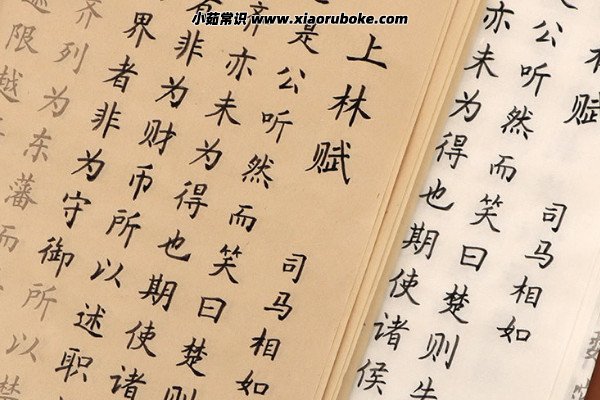 小茹常识 www.xiaoruboke.com
上林赋 司马相如
是公听然而笑曰楚则
齐亦未为得也期使诸
非为财币所以述职
界者非为守御所以
齐列为东藩而
限越
林赋 司马相如
公听然而笑曰楚则
亦未为得也期使诸侯